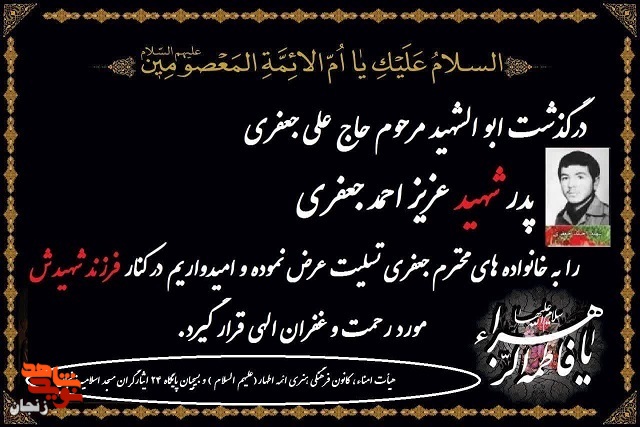 السلامُ عَلَیْكِ یٰا اُمّ الائِمَّةِ المَعْصومِین علیهم السلام
درگذشت ابو الشهید مرحوم حاج علی جعفری
پدر شهید عزیز احمد جعفری
را به خانواده های محترم جعفری تسلیت عرض نموده و امیدواریم در کنار فرزند شهیدش
مورد رحمت و غفران الهی قرار گیرد.
یا فاطمة الزهراء سلام الله علیها
هیأت امناء، کانون فرهنگی هنری ائمه اطهار (علیهم السلام) و بسیجیان پایگاه ۲۴ ایثارگران مسجد اسلامیه
نوید شاهد
زنجان